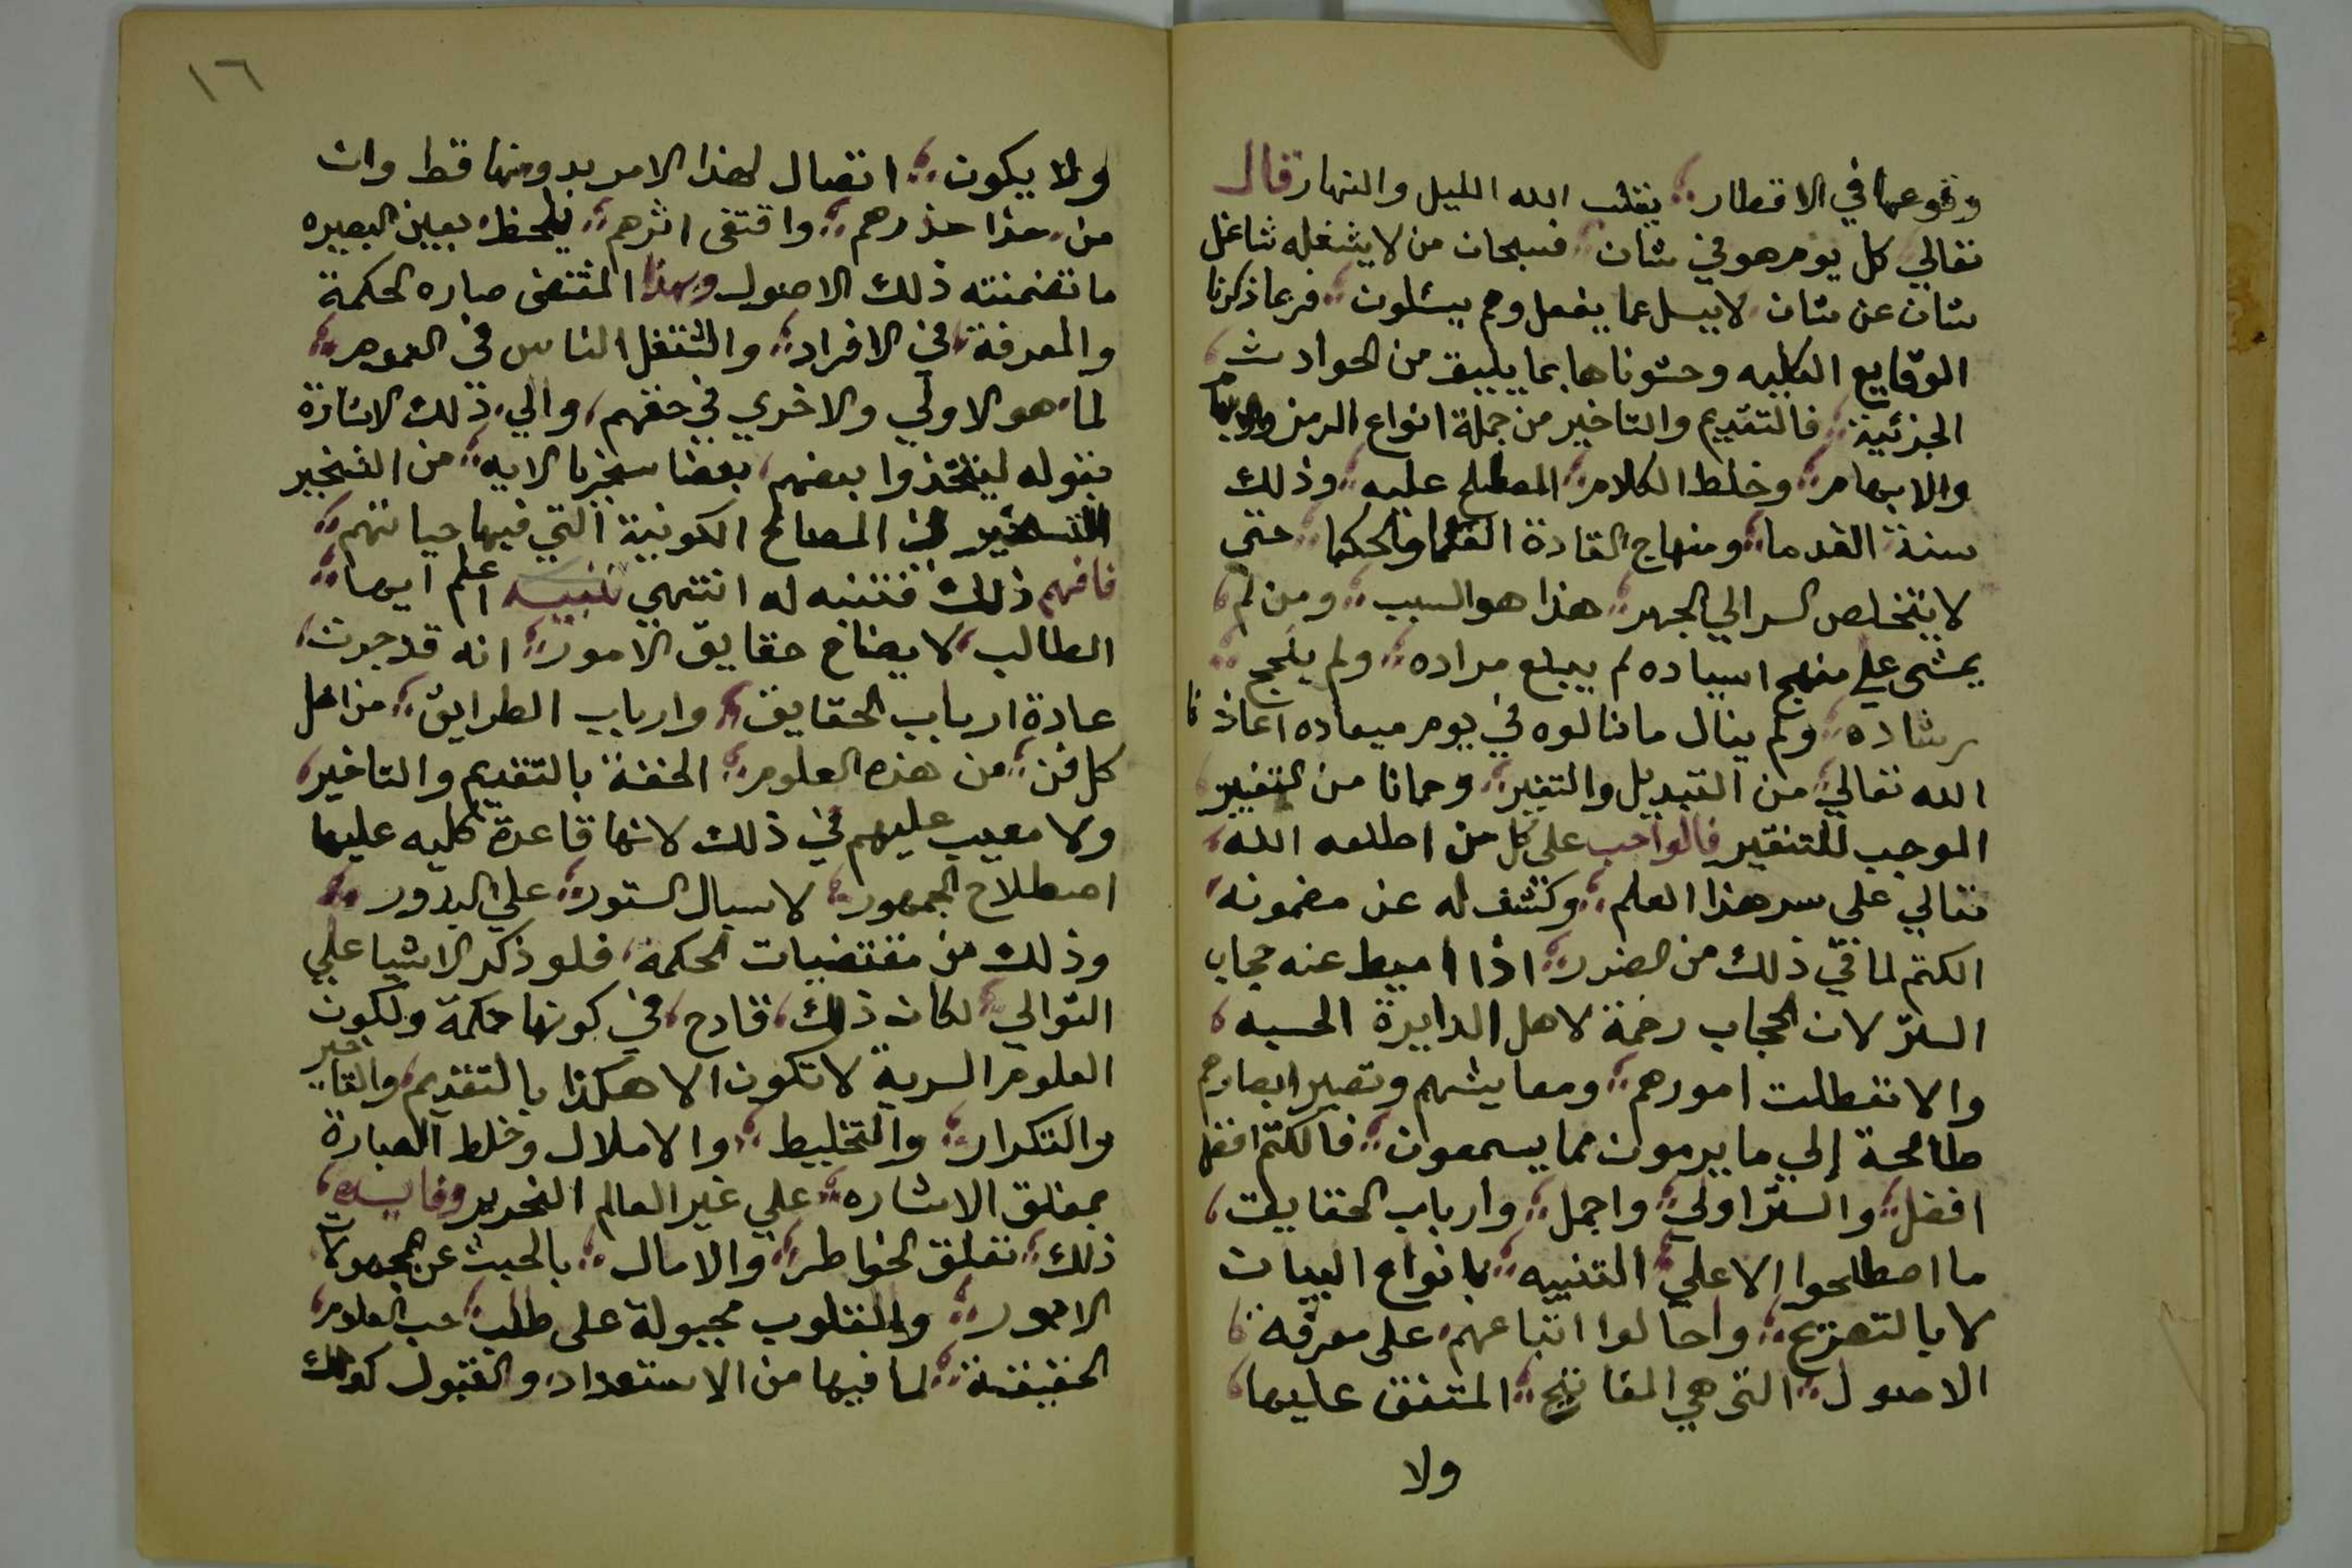 وقوعها في الاقطار يقلب الله الليل والنهار قال
تعالي كل يوم هو في شان فسبحان من لا يشغله شاغل
شان عن شان لا يسل عما يفعل وهم يسئلون فربما ذكرنا
الوقايع الكليه وحشوناها بما يليق من الحوادث
الجزئية فالتقديم والتاخير من جملة انواع الرمز
والابهام وخلط الكلام المصطلح عليه وذلك
سنة القدما ومنهاج القادة العلما والحكما حتي
لا يتخلص السر الي الجهر هذا هو السبب ومن لم
يمشي علي منهج اسياده لم يبلغ مراده ولم ينجح
رشاده ولم ينال ما نالوه في يوم ميعاده اعاذنا
الله تعالي من التبديل والتغير وحمانا من التغيير
الموجب للتنقير فالواجب علي كل من اطلعه الله
تعالي علي سر هذا العلم وكشف له عن مضمونه
الكتم لما في ذلك من الضرر اذا اميط عنه حجاب
الستر لان الحجاب رحمة لاهل الدايرة الحسيه
والا تعطلت امورهم ومعايشهم وتصير ابصارهم
طامحة إلي ما يرمون مما يسمعون فالكتم افضل
افضل والستر اولي واجمل وارباب الحقايق
ما اصطلحوا الا علي التنبيه بانواع البيان
لا بالتصريح واحالوا اتباعهم علي معرفة
الاصول التي هي المفاتيح المتفق عليها
ولا
١٦
ولا يكون اتصال لهذا الامر بدونها قط وان
من حذا حذرهم واقتفي اثرهم يلحظ بعين البصيره
ما تضمنته ذلك الاصول وبهذا المقتضي صاره الحكمة
والمعرفة في الافراد والشتغل الناس في العموم
لما هو الاولي والاخري في حقهم والي ذلك الاشارة
بقوله ليتخذوا بعضهم بعضا سخريا الايه من
التسخير في المصالح الكونية التي فيها حياتهم
فافهم ذلك فتنبه له انتهي تنبيه اعلم ايها
الطالب لا يضاح حقايق الامور انه قد جرت
عادة ارباب الحقايق وارباب الطرايق من اهل
كل فن من هذه العلوم الخفة بالتقديم والتاخير
ولا معيب عليهم في ذلك لانها قاعدة كليه عليها
اصطلاح الجمهور لاسبال الستور علي البدور
وذلك من مقتضيات الحكمة فلو ذكر الاشيا علي
التوالي لكان ذلك قادح في كونها حكمة ولكون
العلوم السرية لا تكون الا هكذا بالتقديم والتاخير
والتكرار والتخليط والاملال وخلط العبارة
بمغلق الاشاره علي غير العالم النحرير وفايدة
ذلك تعلق الخواطر والامال بالحبث عن المجهولات
الامور والقلوب مجبولة علي طلب حب العلوم
الحقيقة لما فيها من الاستعداد والقبول كذلك